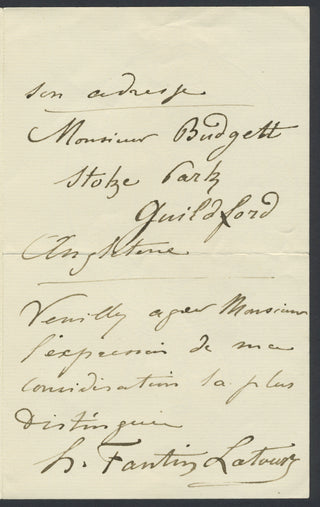 son adresse
Monsieur Budgett
Stoke Park
Guildford
Angleterre
Veuillez agreer Monsieur
l'expression de ma
consideration la plus
Distinguée
h. Fantin Latour